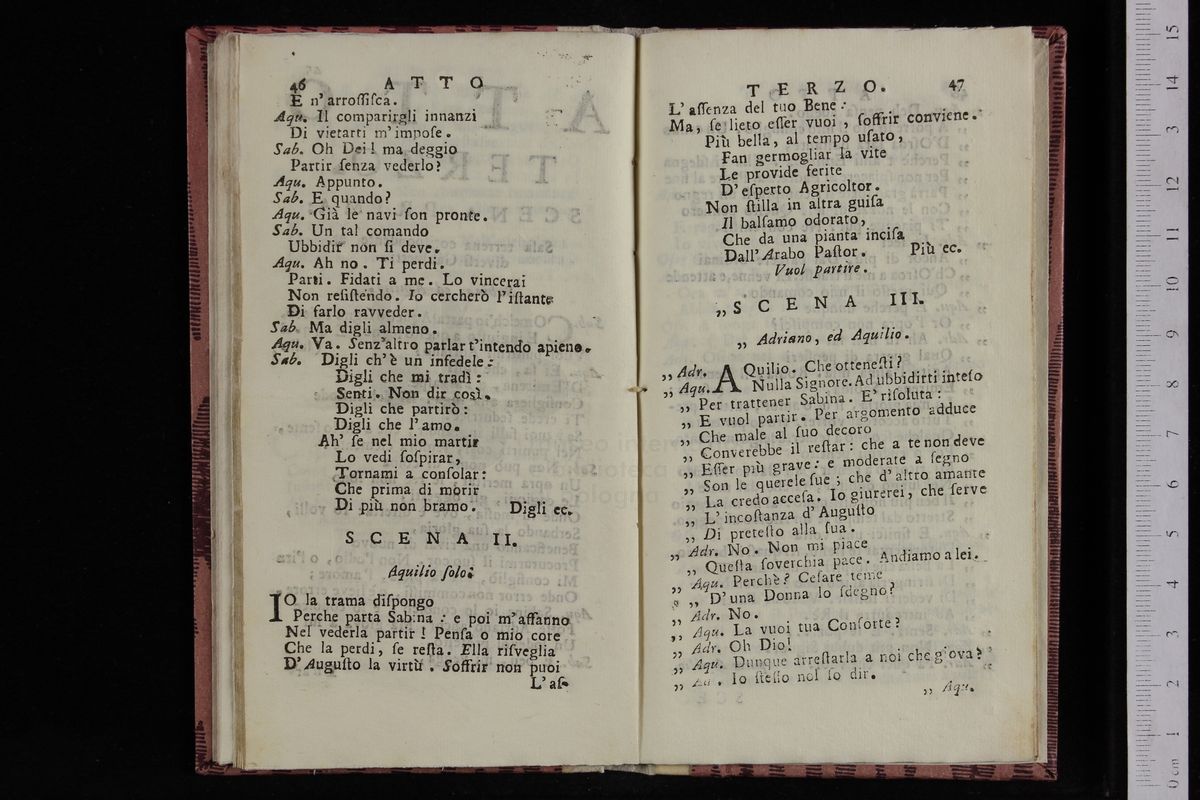 46 ATTO
E n' arroſſiſca.
Aqu. Il comparirgli innanzi
Di vietarti m' impoſe.
Sab. Oh Dei! ma deggio
Partir ſenza vederlo?
Aqu. Appunto.
Sab. E quando?
Aqu. Già le navi ſon pronte.
Sab. Un tal comando
Ubbidir non ſi deve.
Aqu. Ah no. Ti perdi.
Parti. Fidati a me. Lo vincerai
Non reſiſtendo. Io cercherò l'iſtante
Di farlo ravveder.
Sab. Ma digli almeno.
Aqu. Va. Senz'altro parlar t'intendo apieno.
Sab. Digli ch'è un infedele:
Digli che mi tradì:
Senti. Non dir così.
Digli che partirò:
Digli che l'amo.
Ah' ſe nel mio martir
Lo vedi ſoſpirar,
Tornami a conſolar:
Che prima di morir
Di più non bramo. Digli ec.
SCENA II.
Aquilio ſolo:
IO la trama diſpongo
Perche parta Sabina: e poi m'affanno
Nel vederla partir! Penſa o mio core
Che la perdi, ſe reſta. Ella riſveglia
D'Auguſto la virtù. Soffrir non puoi
L'aſ-
TERZO. 47
L' aſſenza del tuo Bene:
Ma, ſe lieto eſſer vuoi, ſoffrir conviene.
Più bella, al tempo uſato,
Fan germogliar la vite
Le provide ferite
D'eſperto Agricoltor.
Non ſtilla in altra guiſa
Il balſamo odorato,
Che da una pianta inciſa
Dall'Arabo Paſtor. Più ec.
Vuol partire.
„ SCENA III.
„ Adriano, ed Aquilio.
„ Adr. AQuilio. Che otteneſti?
„ Aqu. Nulla Signore. Ad ubbidirti inteſo
„ Per trattener Sabina. E' riſoluta:
„ E vuol partir. Per argomento adduce
„ Che male al ſuo decoro
„ Converebbe il reſtar: che a te non deve
„ Eſſer più grave: e moderate a ſegno
„ Son le querele ſue; che d'altro amante
„ La credo acceſa. Io giurerei, che ſerve
„ L'incoſtanza d'Auguſto
„ Di preteſto alla ſua.
„ Adr. No. Non mi piace
„ Queſta ſoverchia pace. Andiamo a lei.
„ Aqu. Perchè? Ceſare teme
„ D'una Donna lo ſdegno?
„ Adr. No.
„ Aqu. La vuoi tua Conſorte?
„ Adr. Oh Dio!
„ Aqu. Dunque arreſtarla a noi che giova?
„ Ad. Io ſteſſo nol ſo dir.
„ Aqu.